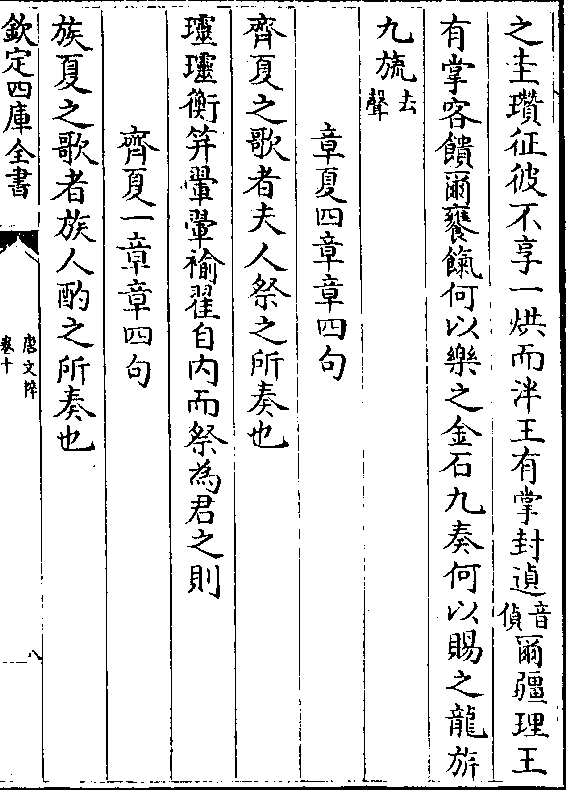 之圭瓚征彼不享一烘而泮王有掌封遉音偵爾疆理王
有掌客饋爾饔餼何以樂之金石九奏何以賜之龍旂
九旒去聲
章夏四章章四句
齊夏之歌者夫人祭之所奏也
璱璱衡笄翬翬褕翟自内而祭為君之則
齊夏一章章四句
族夏之歌者族人酌之所奏也
欽定四庫全書
唐文粹
卷十
八